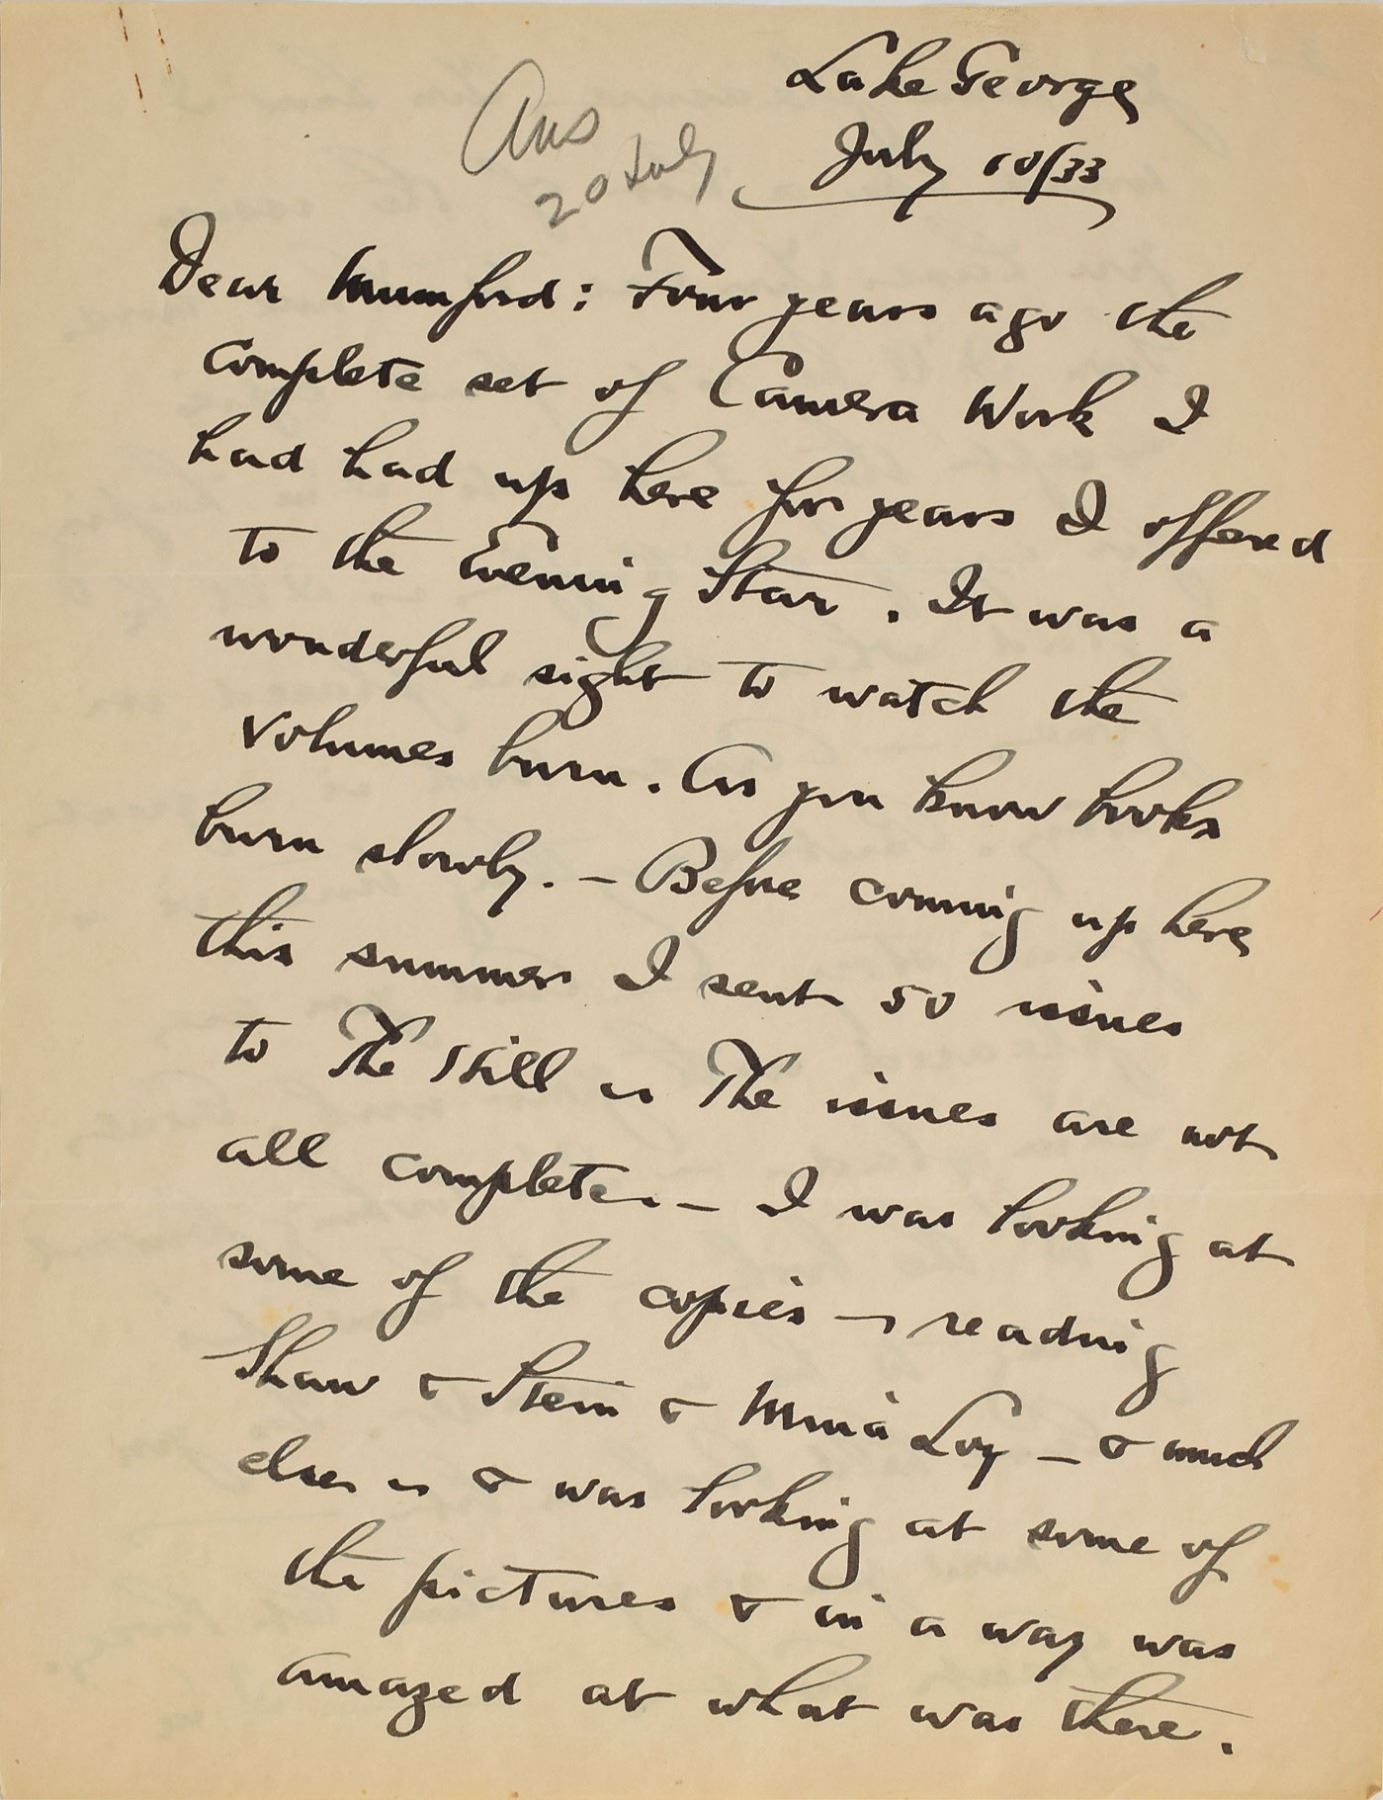 Lake George
July 10/33
Ans
20 July
Dear Mumford: Four years ago the
complete set of Camera Work I
had had up here for years I offered
to the Evening Star. It was a
wonderful sight to watch the
volumes burn. As you know books
burn slowly. – Before coming up here
this summer I sent 50 issues
to The Hill – The issues are not
all complete. – I was looking at
some of the copies – reading
Shaw & Stein & Mina Loy – & much
else – & was looking at some of
the pictures & in a way was
amazed at what was there.